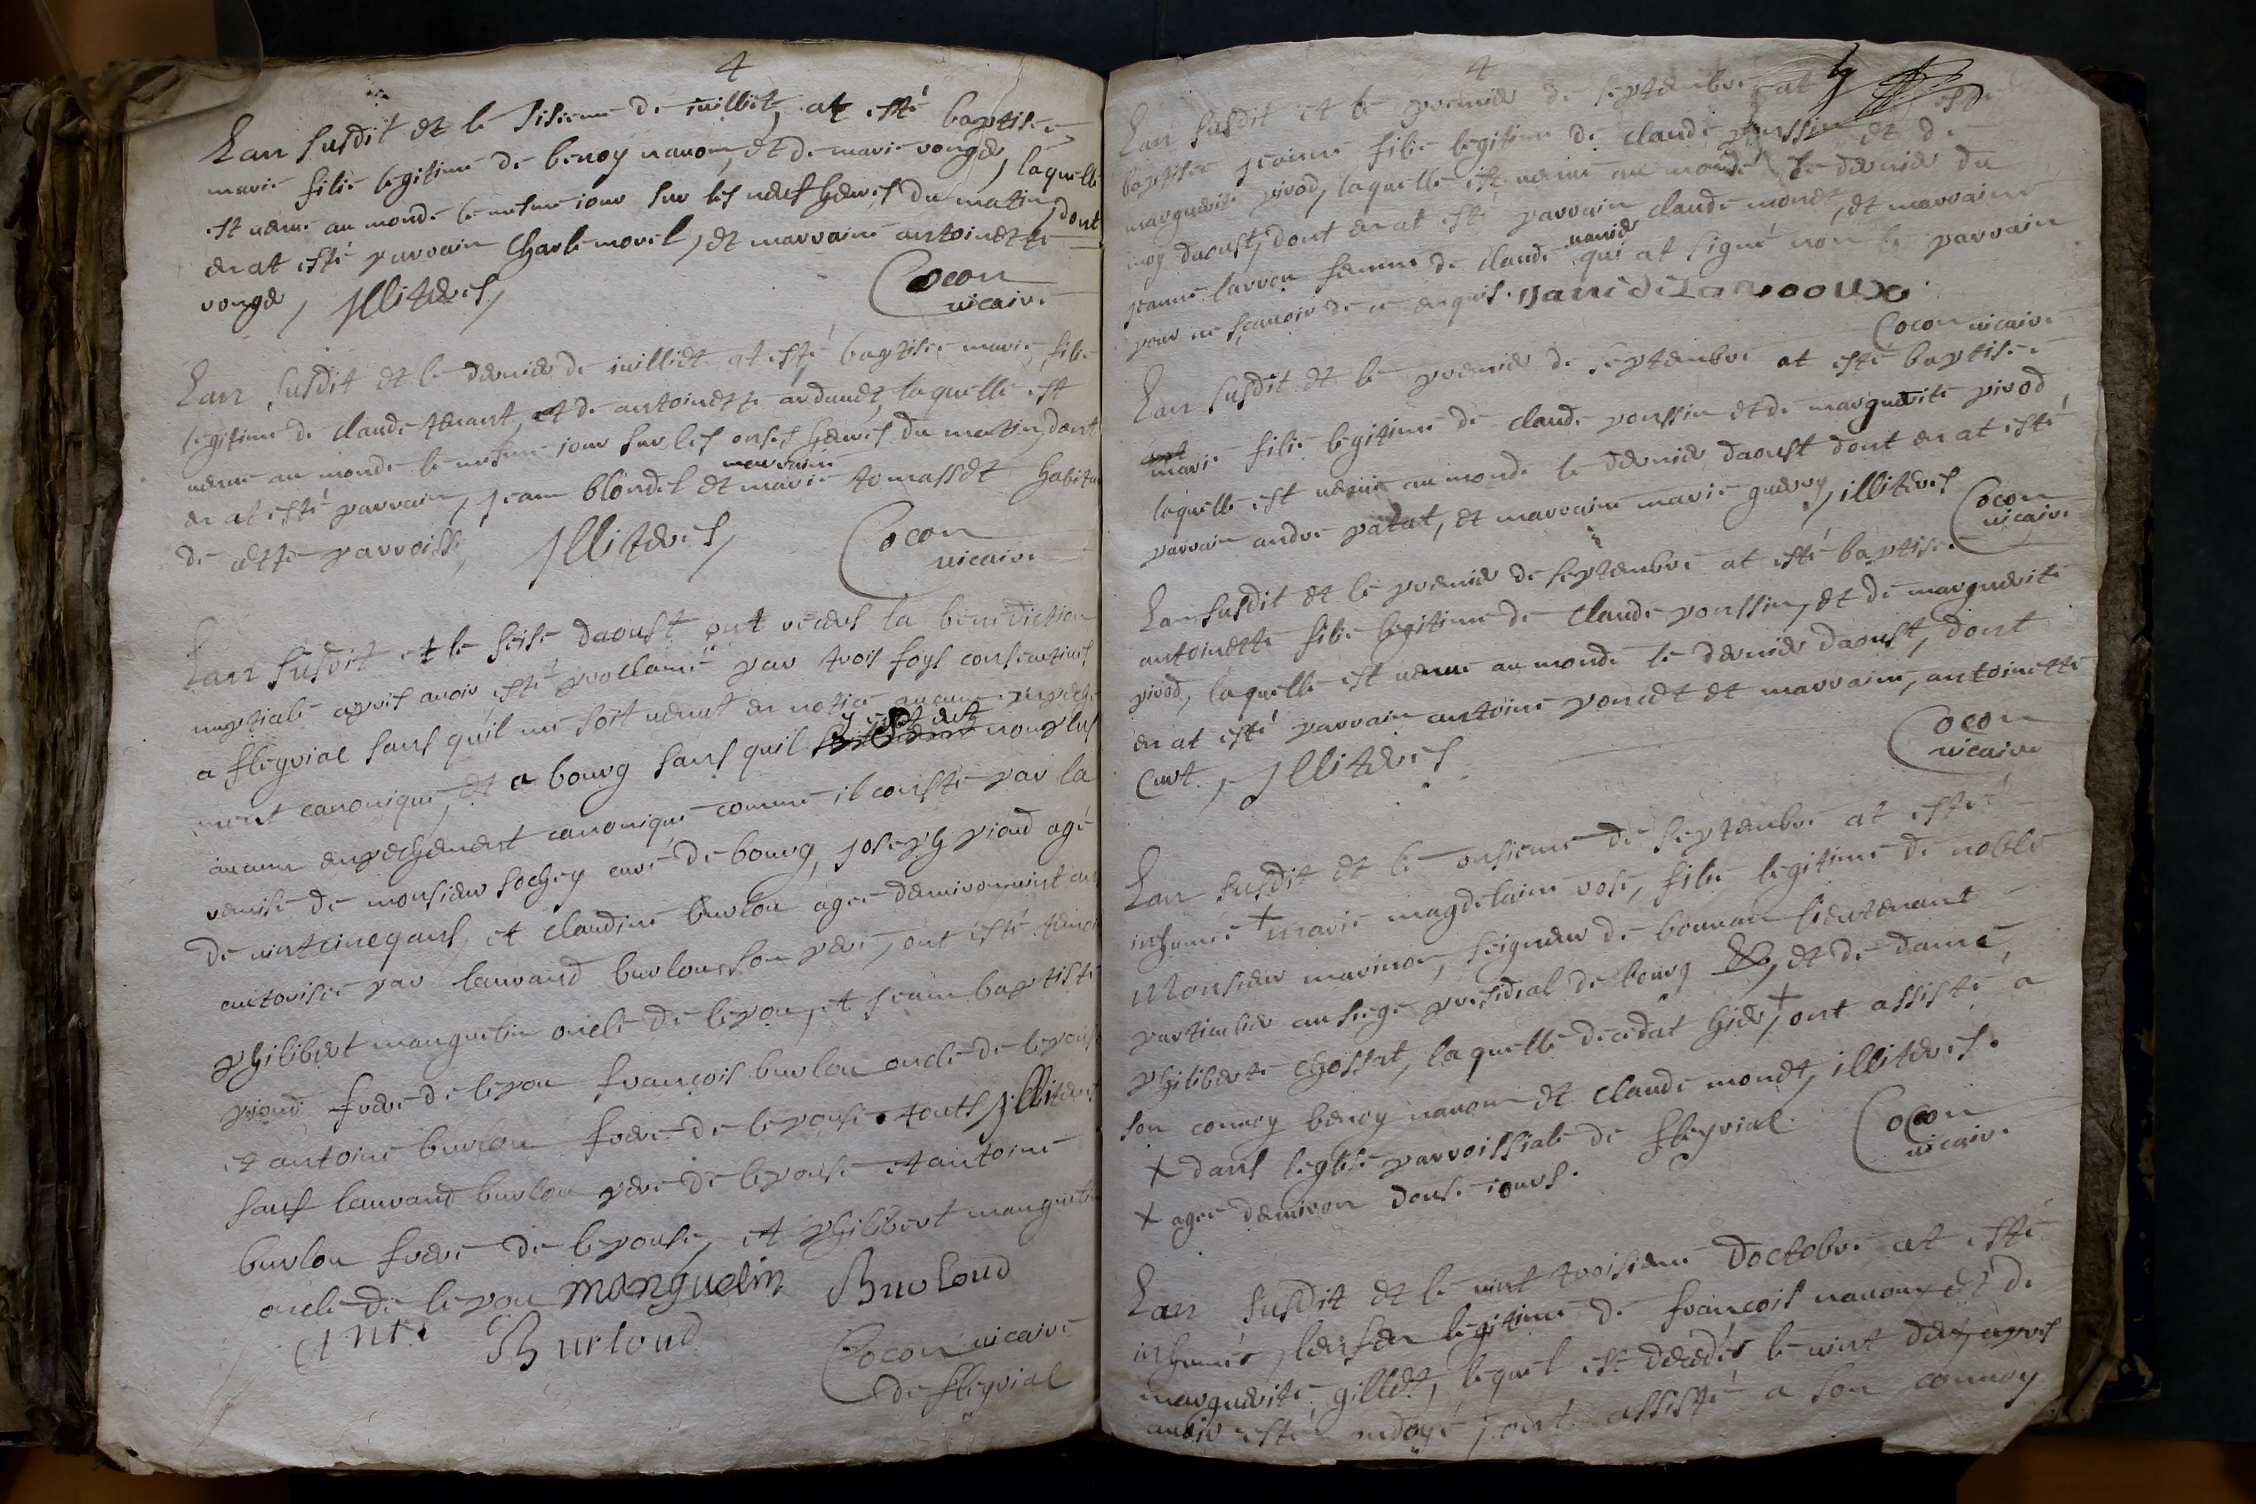 4
Lan susdit et le sisieme de iuilliet, at esté baptisée
marie filie legitime de benoy nauom, et de marie vonge, laquelle
est uenue au monde le mesme iour sur les neuf heures du matin, dont
en at esté parrain Charle morel, et marraine antoinette
vonge, jlliteres,
Cocon
uicaire
Lan susdit et le dernier de iuilliet at esté baptisée marie, filie
legitime de claude tenant, et de antoinette ardanet, laquelle est
uenue au monde le mesme iour sur les onses heures du matin, dont
en at esté parrain, jean blondel et marraine marie tomasset habitan
de cette parroisse, jlliteres,
Cocon
uicaire
Lan susdit et le seise daoust ont receus la benediction
nuptiale apres auoir esté proclamé par trois foys consecutiues
a fleyriat sans quil me soit uenut en notice aucune empeche
ment canonique, et a bourg sans quil y aist eut non plus
aucun enpechement canonique comme il conste par la
remise de monsieur sochey curé de bourg, joseph piond agé
de uintcincqans, et claudine burlou agee denuiron uint ans
autorisee par laurand burlou son pere, ont esté temoi
philibert manguelin oncle de lepou, et jean baptiste
piond frere de lepou françois burlou oncle de lepouse
et antoine burlou frere de lepouse touts jlliteres
sauf laurand burlou pere de lepouse et antoine
burlou frere de lepouse, et philibert manguelin
oncle de lepou manguelin Burloud
Ant. Burloud
Cocon uicaire
de fleyriat
4
Lan susdit et le premier de septembre at esté
baptisée jeanne filie legitime de claude ponssin et de
marguerite pivod, laquelle est uenue au monde le dernier du
moy daoust, dont en at esté parrain claude monet, et marraine
jeanne larron femme de claude uanier qui at signé non le parrain
pour ne sçauoir de ce enquis.
Cocon uicaire
Lan susdit et le premier de septembre at esté baptisée
marie filie legitime de claude ponssin et de marguerite pivod
laquelle est uenue au monde le dernier daoust dont en at esté
parrain andre patat, et marraine marie guerry, illiteres
Cocon
uicaire
Lan susdit et le premier de septembre at esté baptisee
antoinette filie legitime de claude ponssin, et de marguerite
pivod, laquelle est uenue au monde le dernier daoust, dont
en at esté parrain antoine poncet et marraine, antoinette
Curt., jlliteres
Cocon
uicaire
Lan susdit et le onsieme de septembre at esté
inhumée + marie magdelaine rose, filie legitime de noble
Monsieur marinon, seigneur de bonnan lieutenant
particulier au siege presidial de bourg, et de dame
philiberte chossat, laquelle decedat hier, + ont assisté a
son conuoy benoy nauom et claude monet, illiteres.
+ dans leglise parroissiale de fleyriat.
+ agee denuiron douse iours.
Cocon
uicaire
Lan susdit et le uint troisieme doctobre at esté
inhumés, lenfan legitime de françois nauom, et de
marguerite gillet, lequel est decedés le uint deu, apres
auoir esté ondoyé, ont assisté a son conuoy